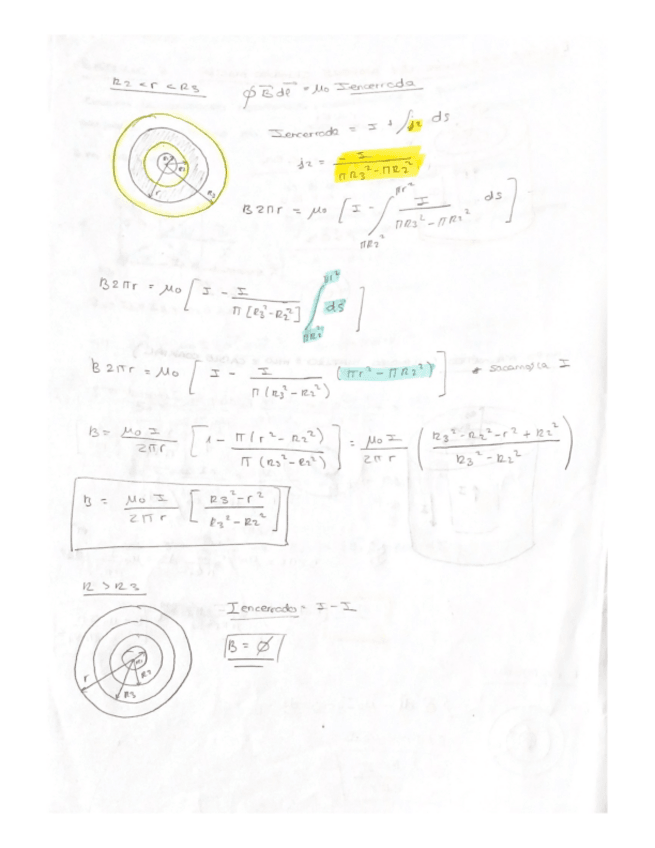 R2 < r < R3
∮ B⃗ dl⃗ = μ0 Iencerrada
Iencerrada = I + ∫ j2 ds
j2 = -I / (πR3² - πR2²)
B2πr = μ0 [ I - ∫_{πR2²}^{πr²} I / (πR3² - πR2²) ds ]
B2πr = μ0 [ I - I / (π[R3² - R2²]) ∫_{πR2²}^{πr²} ds ]
B2πr = μ0 [ I - I / (π(R3² - R2²)) (πr² - πR2²) ] * sacamos la I
B = μ0 I / 2πr [ 1 - π(r² - R2²) / π(R3² - R2²) ] = μ0 I / 2πr ( (R3² - R2² - r² + R2²) / (R3² - R2²) )
B = μ0 I / 2πr [ (R3² - r²) / (R3² - R2²) ]
R > R3
Iencerrado = I - I
B = ∅